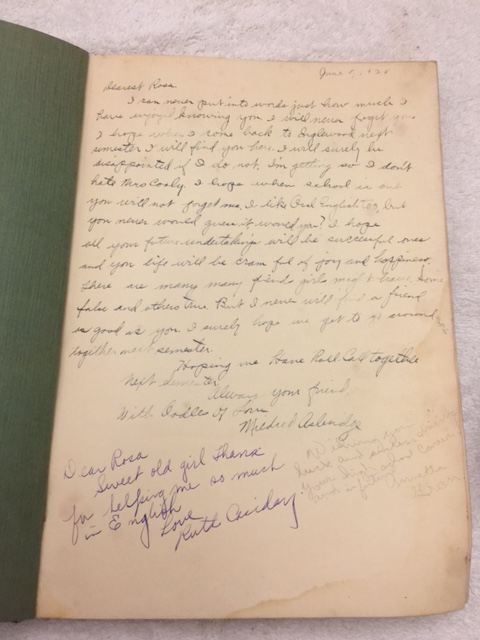 June 5, 1925
Dearest Rosa
I can never put into words just how much I
have enjoyed knowing you. I will never forget you
I hope when I come back to Inglewood next
semester I will find you here. I will surely be
disappointed if I do not. I'm getting so I don't
hate Mrs Cooly. I hope when school is out
you will not forget me. I like Oral English too, but
you never would guess it would you? I hope
all your future undertakings will be successful ones
and you life will be cram ful of joy and happiness.
There are many many friends girls might have, some
false and others true. But I never will find a friend
as good as you. I surely hope we get to go around
together next semester.
Hoping we have Roll Call together
next semester
Always your friend,
With Oodles Of Love
Mildred
Dear Rosa
Sweet old girl thanks
for helping me so much
in English
Love
Ruth
Wishing you
luck and
your high school career
and after